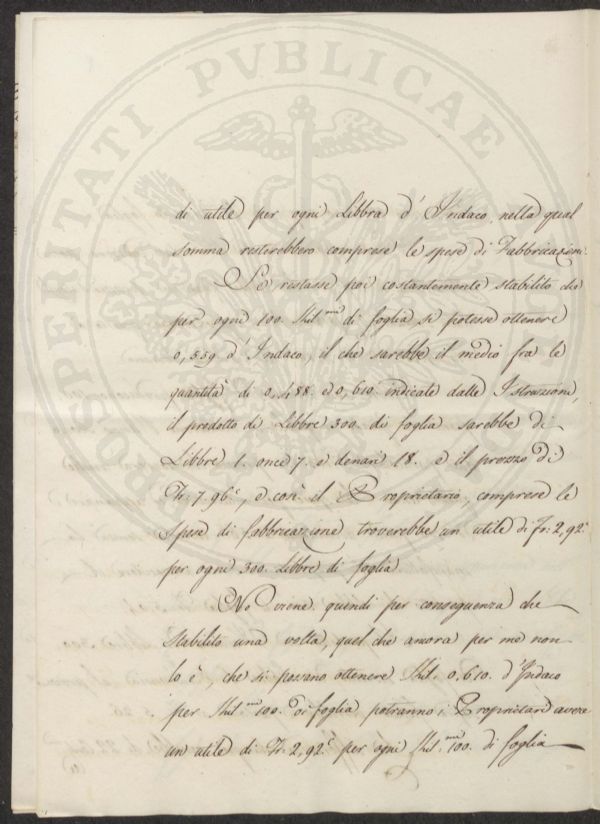 PROSPERITATI PVBLICAE
di utile per ogni Libbra d'Indaco, nella qual
somma resterebbero comprese le spese di Fabbricazione.
Se restasse poi costantemente stabilito che
per ogni 100. Kil.mi di foglia si potesse ottenere
0,559 d'Indaco, il che sarebbe il medio fra le
quantità di 0,488. e 0,610. indicate dalle Istruzioni,
il prodotto di Libbre 300. di foglia sarebbe di
Libbre 1. once 7. e denari 18. e il prezzo di
Fr: 7.96c, e così il Proprietario, comprese le
spese di fabbricazione troverebbe un utile di Fr: 2,92c
per ogni 300. Libbre di foglia.
Ne viene quindi per conseguenza che
stabilito una volta, quel che ancora per me non
lo è, che si possano ottenere Kil. 0.610. d'Indaco
per Kil.mi 100. di foglia potranno i Proprietari avere
un utile di Fr: 2,92c per ogni Kil.mi 100. di foglia